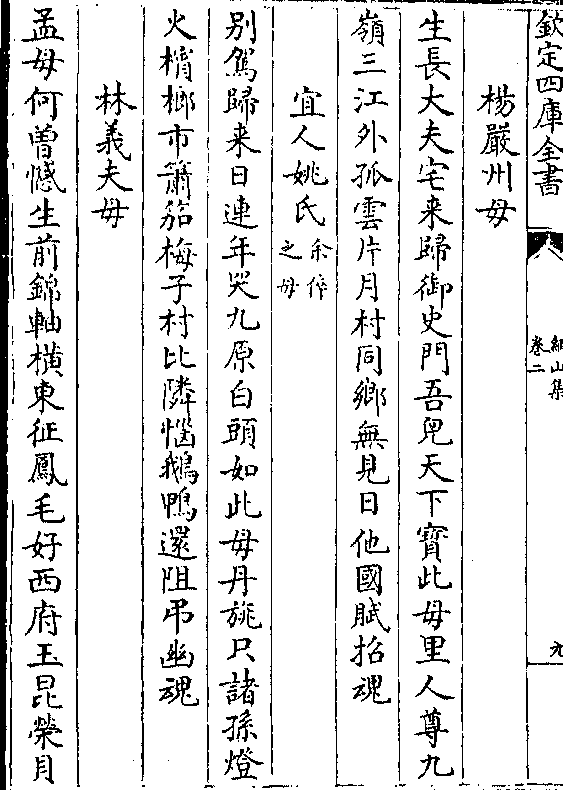 欽定四庫全書
絅山集
卷二
九
楊嚴州母
生長大夫宅来歸御史門吾兒天下寳此母里人尊九
嶺三江外孤雲片月村同鄉無見日他國賦招魂
宜人姚氏余倅之母
别駕歸来日連年哭九原白頭如此母丹旐只諸孫燈
火檳榔市簫笳梅子村比隣惱鵝鴨還阻弔幽魂
林義夫母
孟母何曽憾生前錦軸横東征鳳毛好西府玉昆榮月